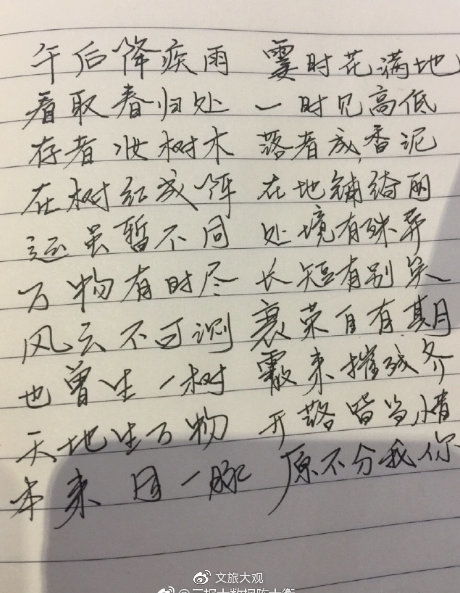 午后降疾雨 霎时花满地
看取春归处 一时见高低
存者妆树木 落者成香泥
在树红成阵 在地铺绮丽
运虽暂不同 处境有殊异
万物有时尽 长短有别矣
风云不可测 衰荣自有期
也曾生一树 霰来摧残齐
天地生万物 开落皆当惜
本来同一脉 原不分我你
文旅大观